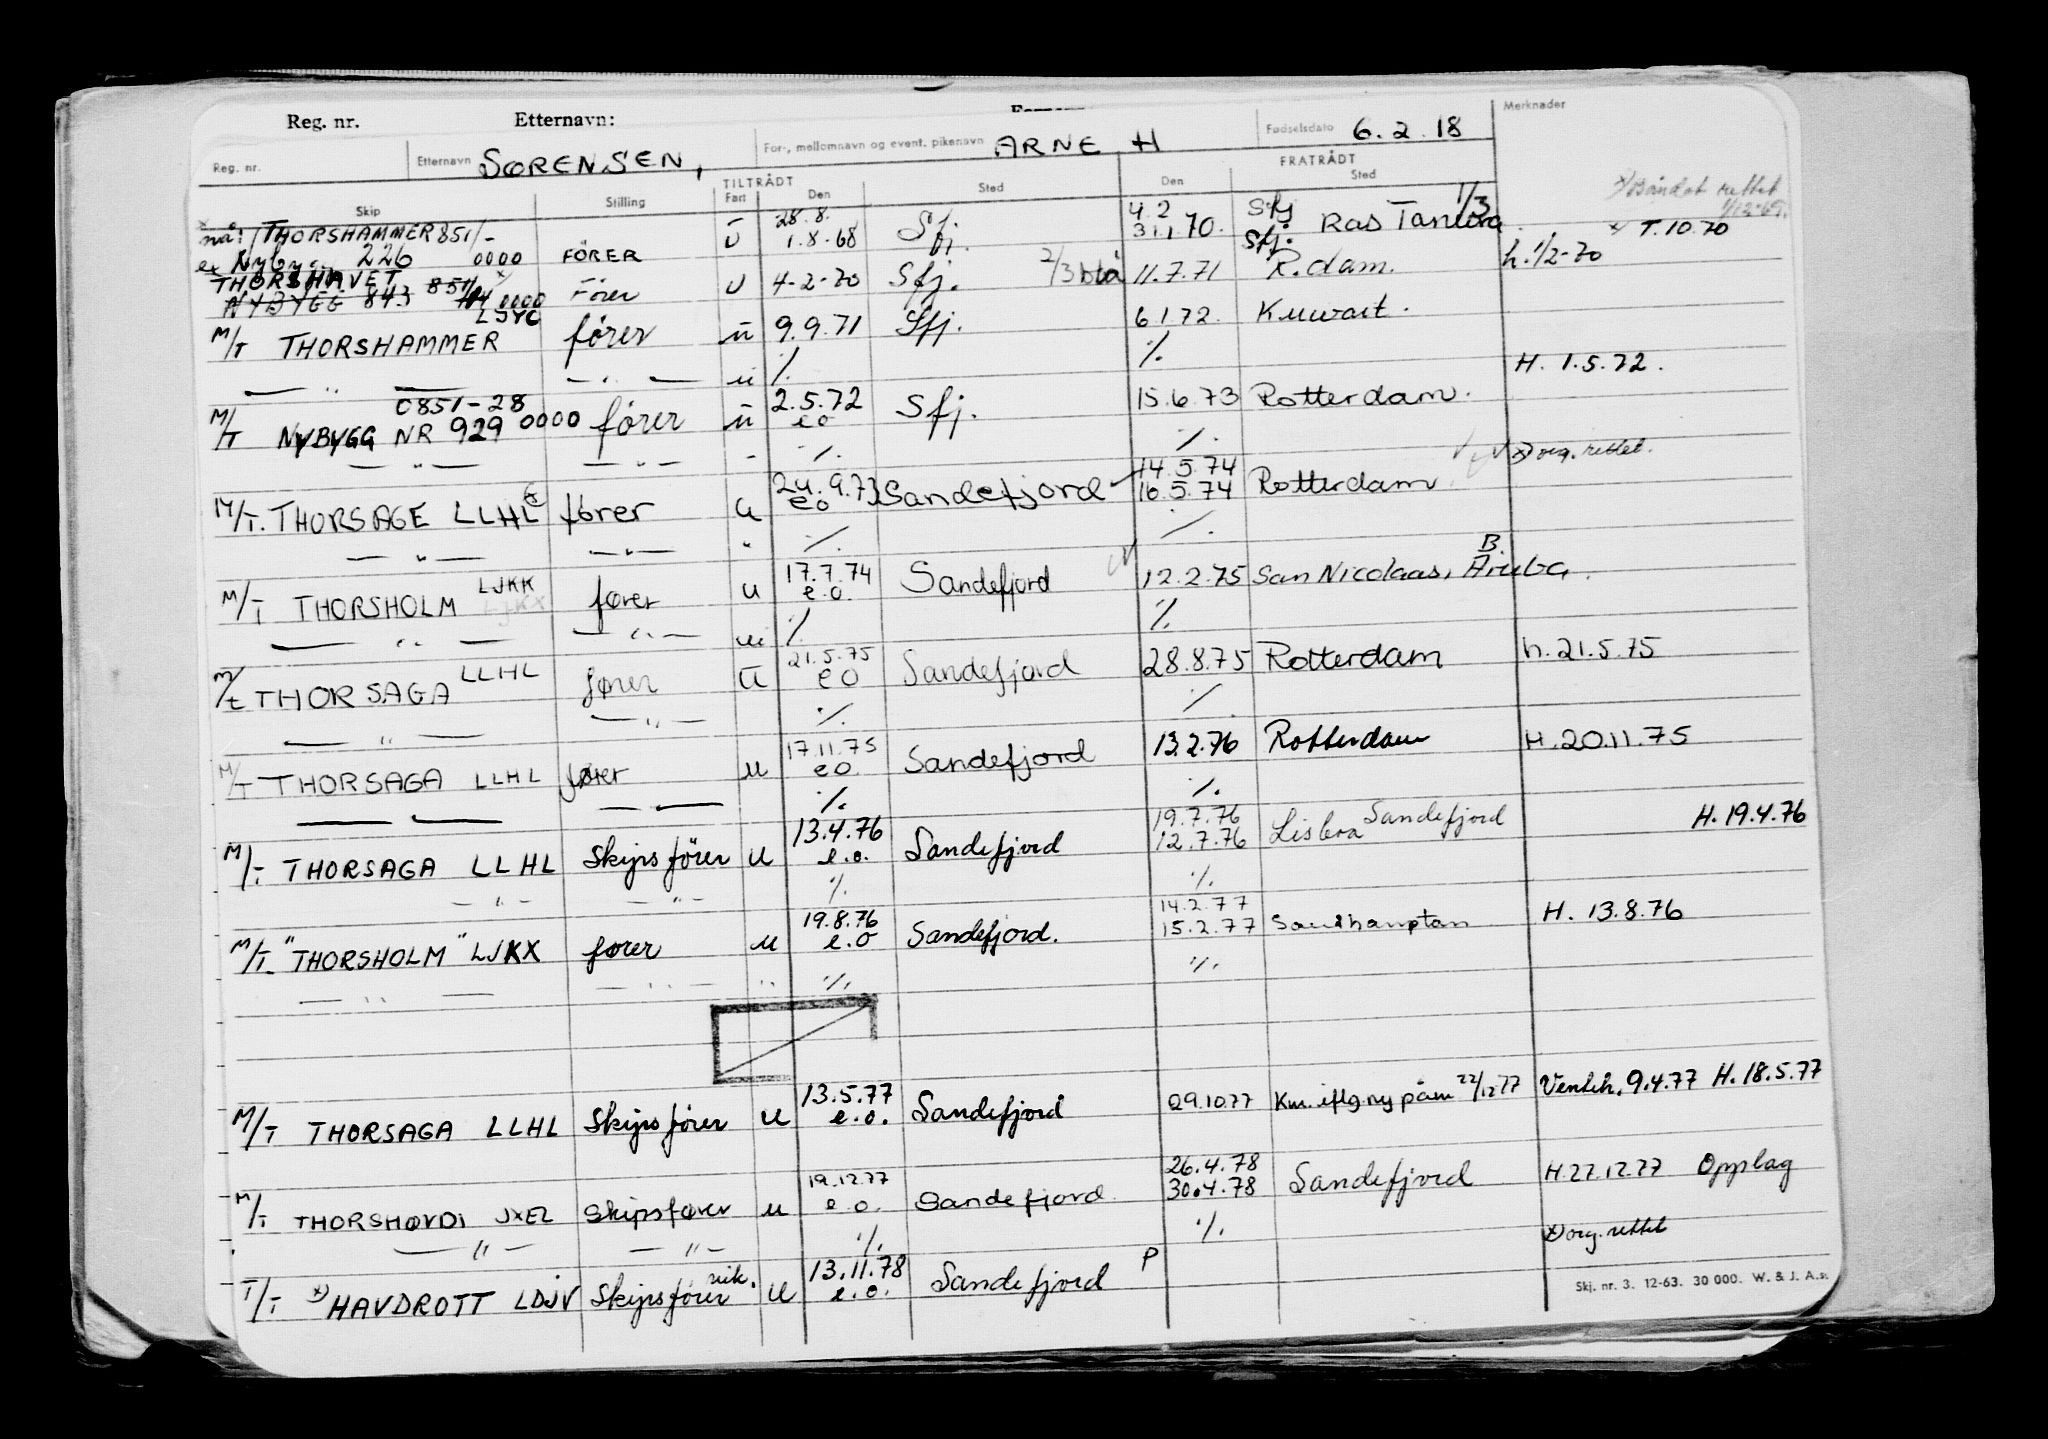 Reg. nr. Etternavn:
Reg. nr. Etternavn SØRENSEN, For-, mellomnavn og event. pikenavn ARNE H Fødselsdato 6.2.18 Merknader
TILTRÅDT FRATRÅDT
Skip Stilling Fart Den Sted Den Sted
x) Båndet rettet 1/12-69.
nå: THORSHAMMER 851/- 28.8. 4.2 Sfj 1/3
ex Nybygg 226 0000 FÖRER U 1.8-68 Sfj. 31.1.70. Sfj. Ras Tanura x/ T.10.70
THORSHAVET 851/
NYBYGG 843 0000 Fører U 4-2-70 Sfj. 2/3 blå 11.7.71 R.dam. h. 1/2-70
LJYC
M/T THORSHAMMER fører u 9.9.71 Sfj. 6.1.72. Kuwait.
— " — — " — u ./. ./. H. 1.5.72.
0851-28 2.5.72
M/T NYBYGG NR 929 0000 fører u eo Sfj. 15.6.73 Rotterdam.
— " — — " — - ./. ./. x) org. rettet.
24.9.73 14.5.74
M/T. THORSAGE LLHL fører u eo Sandefjord 16.5.74 Rotterdam
— " — — " — " ./. ./.
LJKK 17.7.74 B.
M/T THORSHOLM LJKX fører u e.o. Sandefjord 12.2.75 San Nicolaas, Aruba.
— " — — " — u ./. ./.
LLHL 21.5.75
M/t THORSAGA fører u eo Sandefjord 28.8.75 Rotterdam h. 21.5.75
— " — — " — ./. ./.
17.11.75
M/T THORSAGA LLHL fører u eo. Sandefjord 13.2.76 Rotterdam H. 20.11.75
— — — — ./. ./.
13.4.76 19.7.76 Sandefjord H. 19.4.76
M/T THORSAGA LLHL Skipsfører u e.o. Sandefjord 12.7.76 Lisboa
— " — — " — ./. ./.
19.8.76 14.2.77
M/T. "THORSHOLM" LJKX fører u e.o Sandefjord. 15.2.77 Southampton H. 13.8.76
— " — — " — " ./. ./.
13.5.77
M/T THORSAGA LLHL Skipsfører u e.o. Sandefjord 09.10.77 Km. iflg. ny påm 22/12 77 Venteh. 9.4.77 H. 18.5.77
19.12.77 26.4.78
M/T THORSHØVDI JXEL Skipsfører u e.o. Sandefjord 30.4.78 Sandefjord H. 27.12.77 Opplag
— " — — " — ./. ./. x) org. rettet
vik. 13.11.78
T/T x) HAVDROTT LDJV Skipsfører u e.o. Sandefjord P
Skj. nr. 3. 12-63. 30 000. W. & J. A.s.